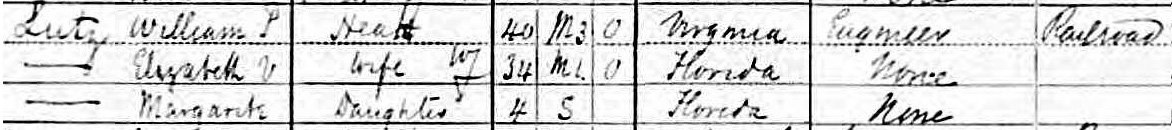 Lutz William P Head 40 M3 0 Virginia Engineer Railroad
— Elizabeth V Wife W 34 M1 0 Florida None
— Margarite Daughter 4 S Florida None